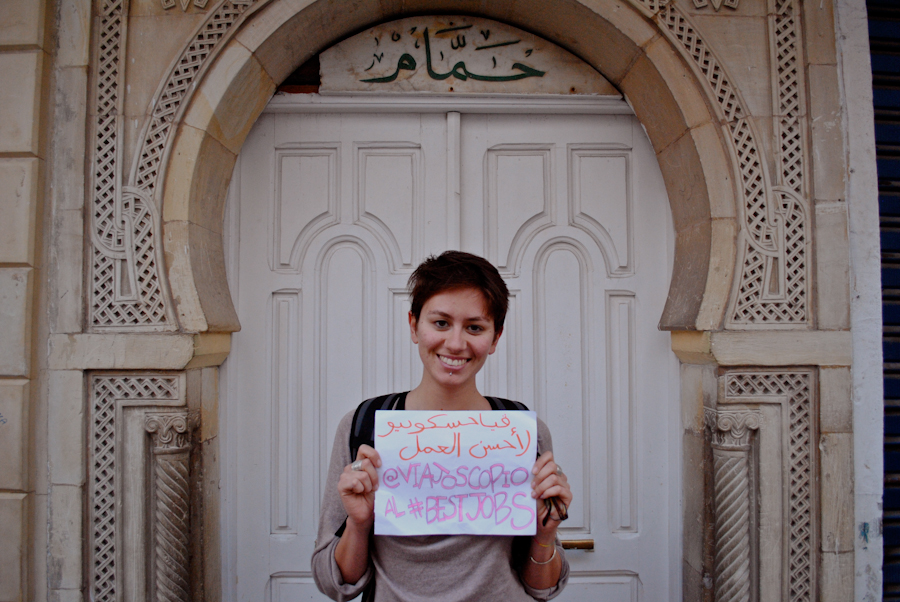 حمّام
فياخسكوبيو
لأحسن العمل
@VIAJOSCOPIO
AL #BESTJOBS